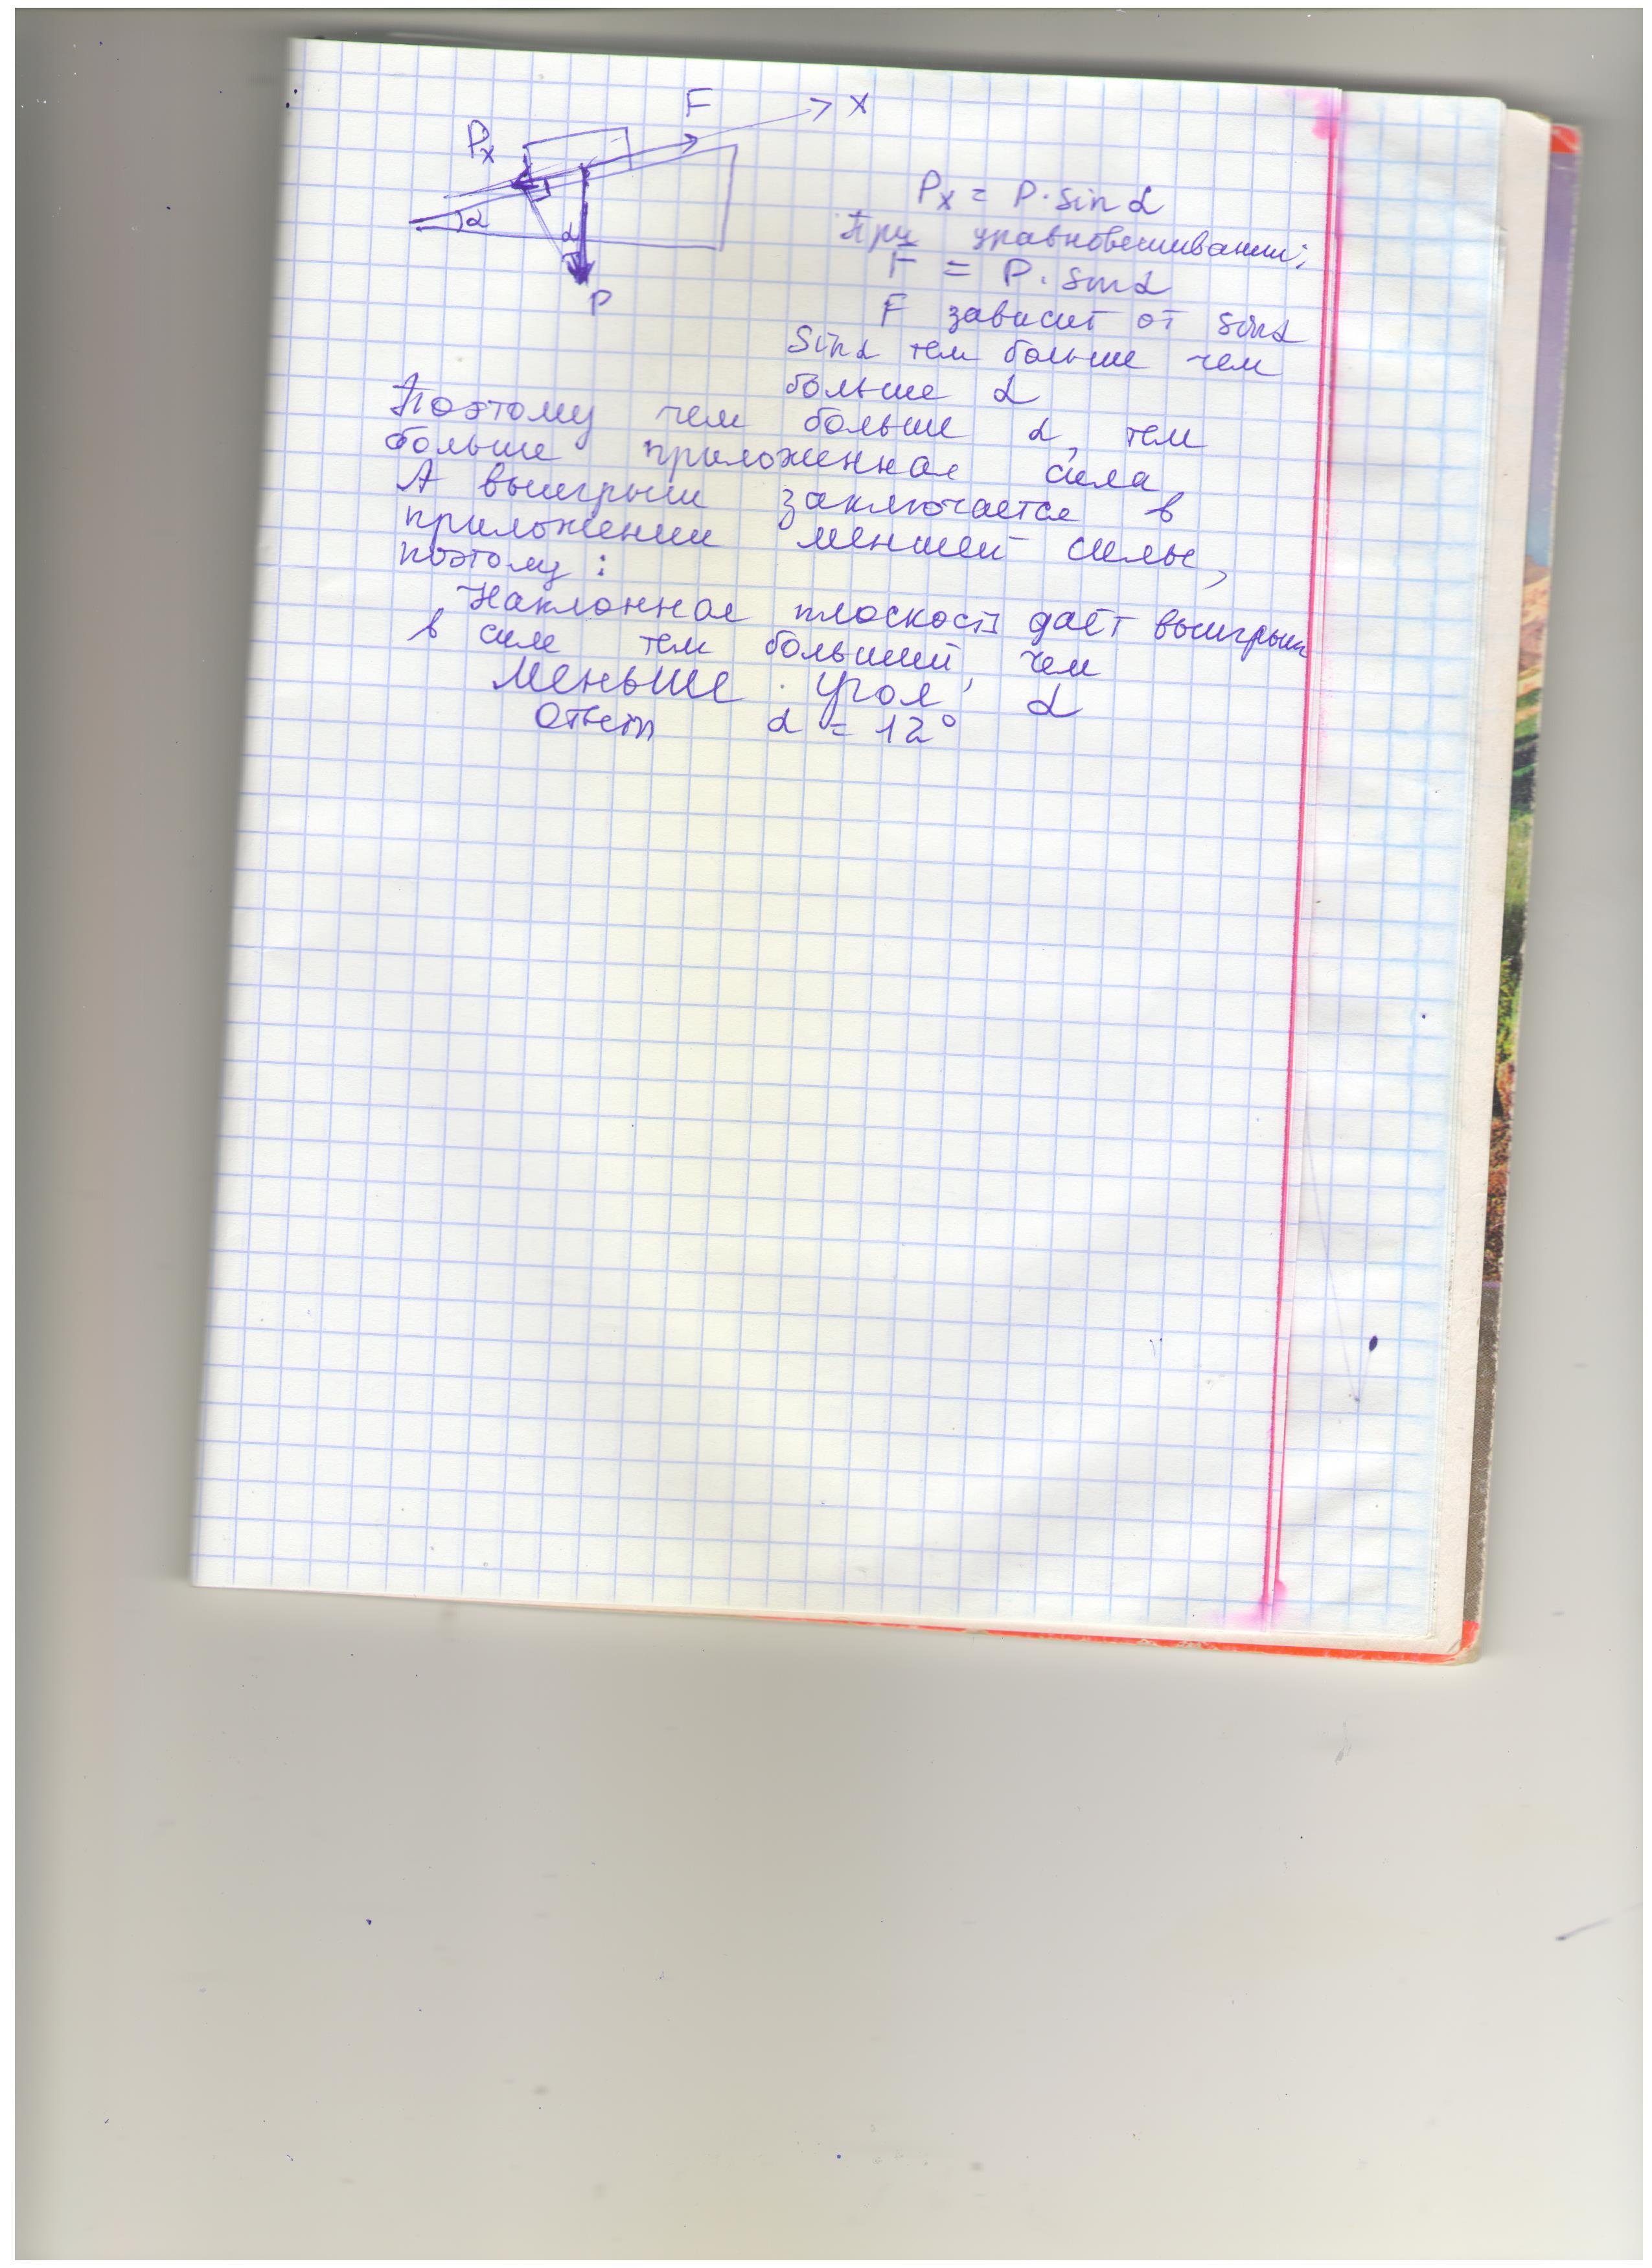 F
X
Px
α
α
P
Px = P·sin α
При уравновешивании:
F = P·sinα
F зависит от sinα
Sinα тем больше чем
больше α
Поэтому чем больше α, тем
больше приложенная сила,
А выигрыш заключается в
приложении меншей силы,
поэтому:
Наклонная плоскость даёт выигрыш
в силе тем больший, чем
меньше угол α
Ответ α = 12°